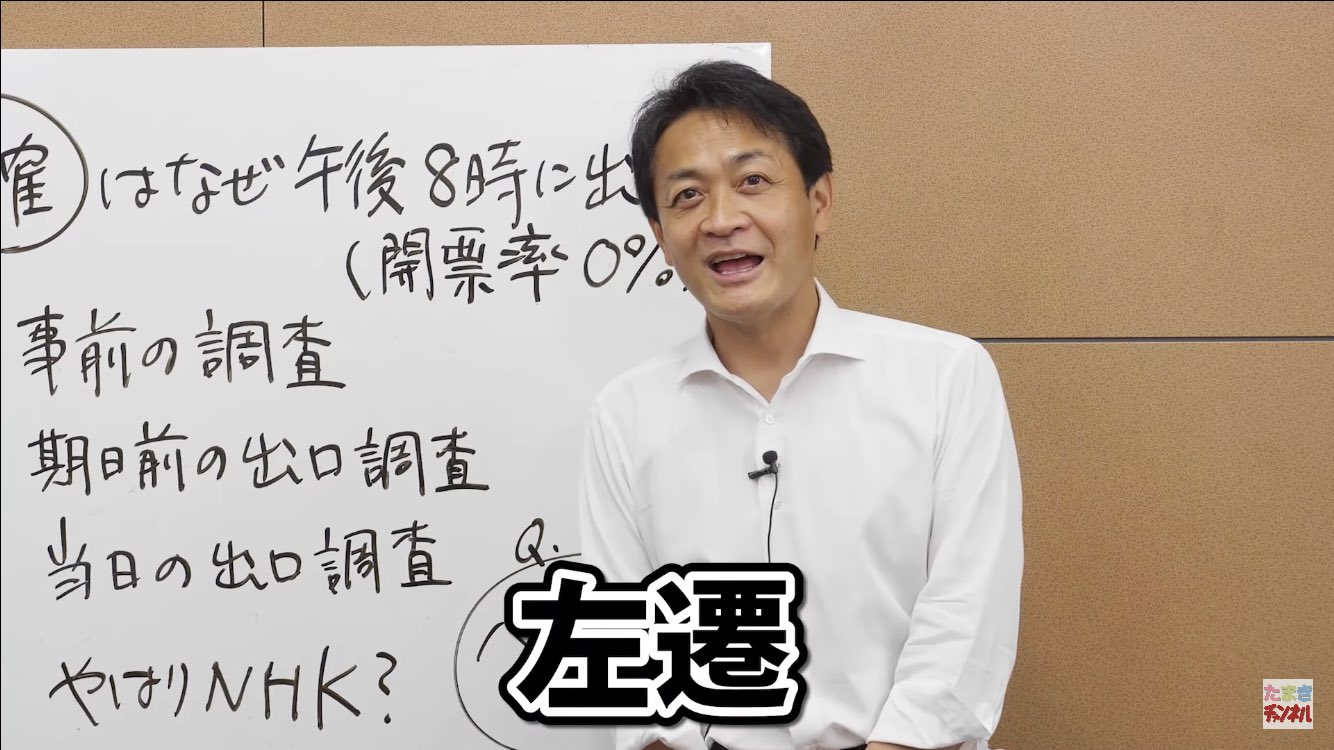 確はなぜ午後8時に出
(開票率0%
事前の調査
期日前の出口調査
当日の出口調査
Q.
やはりNHK?
左遷
たまき
チャンネル